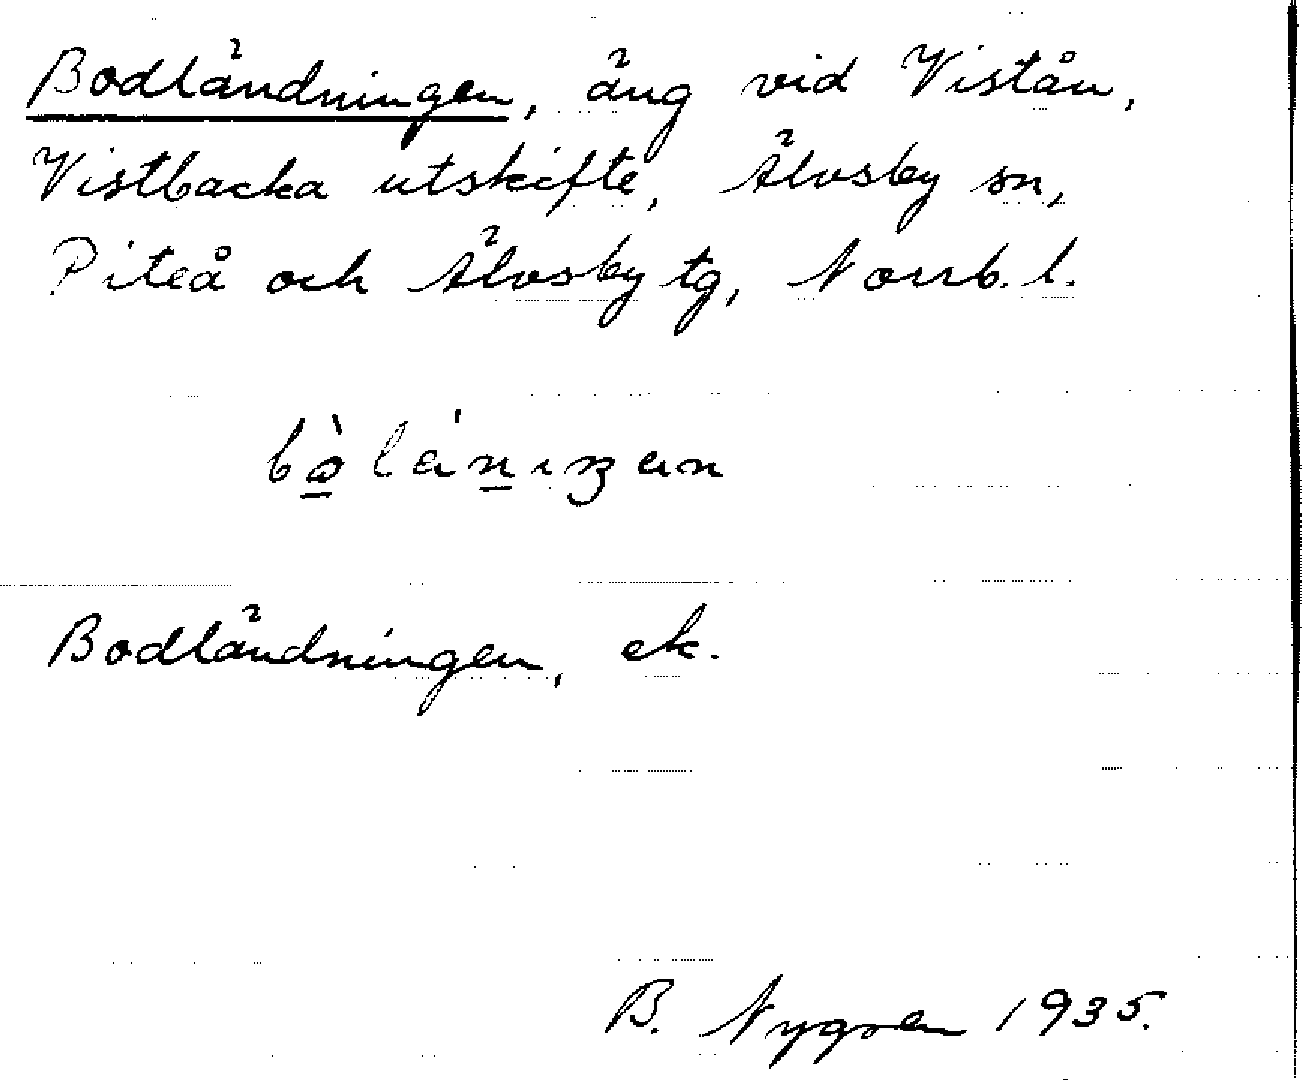 Bodländningen, äng vid Viståu,
Vistbacka utskifte, Älvsby sn,
Piteå och Älvsby tg, Norrb. l.
Bodländningen, ek.
B. Nygren 1935.